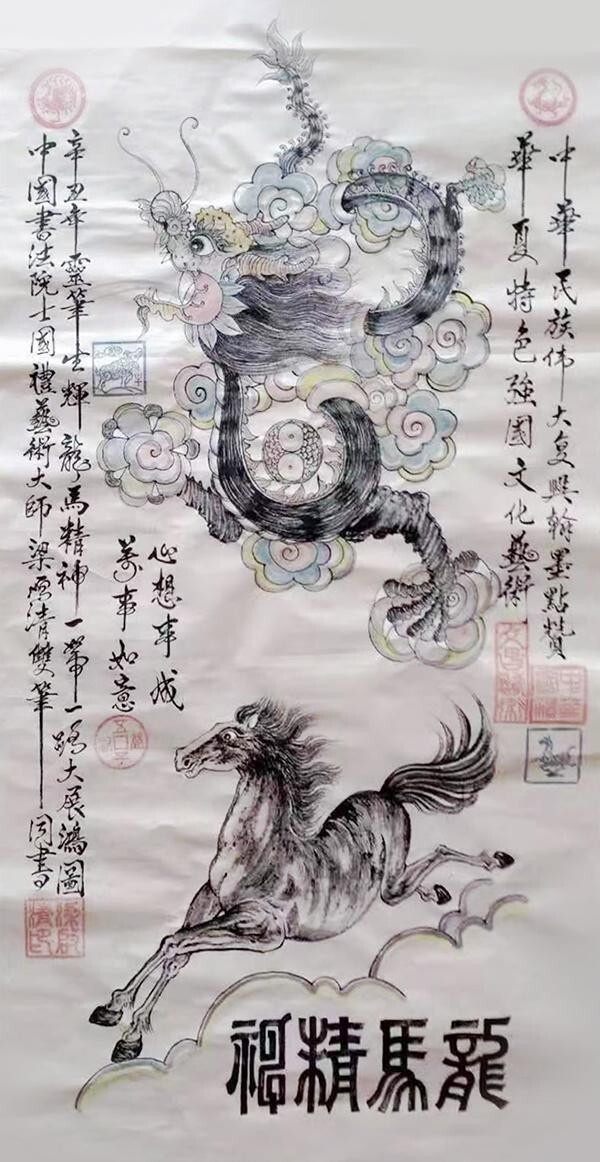 中華民族偉大复興翰墨點贊
華夏特色強國文化藝術
心想事成
萬事如意
辛丑年靈筆生輝龍馬精神一帶一路大展鴻圖
中國書法院士國禮藝術大師梁啓清雙筆同書
龍馬精神